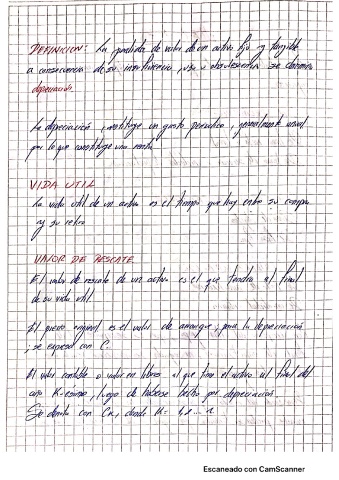 DEFINICION: La perdida de valor de un activo fijo y tangible
a consecuencia de su insuficiencia, uso u obsolescencia se denomina
depreciación.
La depreciación, constituye un gasto periodico, generalmente anual
por lo que constituye una renta.
VIDA UTIL
La vida util de un activo es el tiempo que hay entre su compra
y su retiro
VALOR DE RESCATE
El valor de rescate de un activo es el que tendra al final
de su vida util.
El precio original es el valor de arranque, para la depreciación
, se expresa con C.
El valor contable o valor en libros al que tiene el activo al final del
año K-esimo, luego de haberse hecho por depreciación.
Se denota con Ck, donde K=
Escaneado con CamScanner